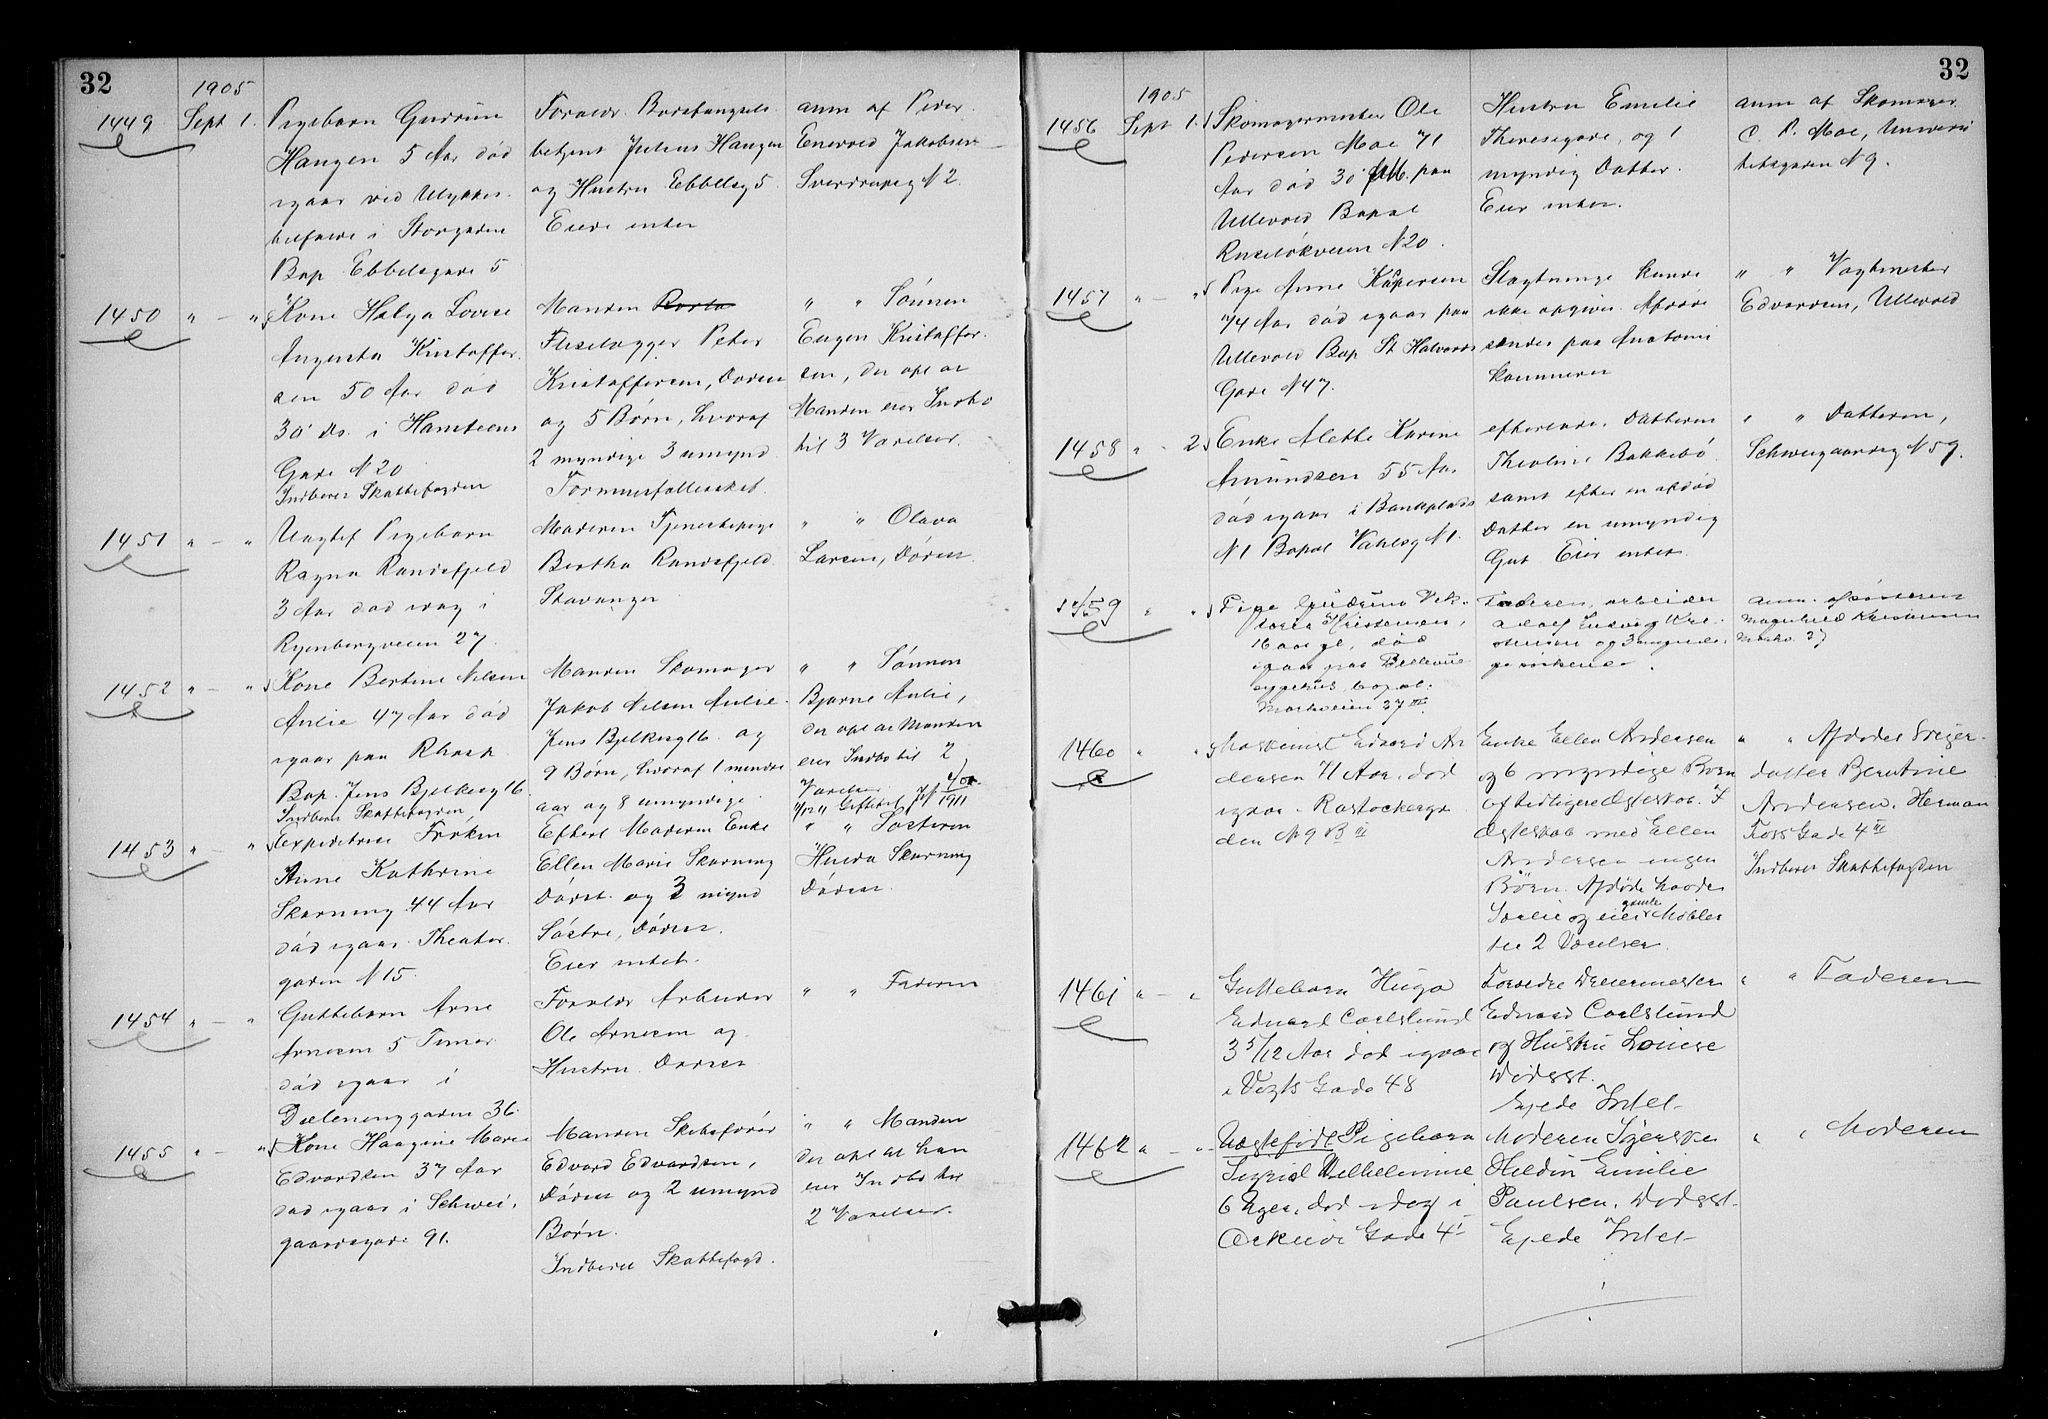 32
1905
1449
Sept 1.
Pigebarn Gudrun
Haugen 5 Aar død
igaar ved Ulykkes-
tilfælde i Storgaden
Bop Ebbelsgade 5
Forældre
betjent Julius Haugen
og Hustru Ebbelsg 5
Eiede intet
anm af Peder
Enevold Jakobsen
Sverdrupsg N 2.
1450 " — "
Kone Helga Lovise
Augusta Kristoffer-
sen 50 Aar død
30 ds. i Hansteens
Gade N 20
Indberet Skattefogden
Manden
Peter
Kristoffersen, Dødsst
og 5 Børn, hvoraf
2 myndige 3 umynd.
Formuesfællesskab.
" " Sønnen
Eugen Kristoffer-
sen, der opl at
Manden eier Indbo
til 3 Værelser.
1451 " — "
Uægtef Pigebarn
Ragna Randsfjeld
3 Aar død idag i
Ryenbergveien 27.
Moderen Tjenestepige
Bertha Randsfjeld
Stavanger
" " Olava
Larsen, Dødsst.
1452 " — "
Kone Bertine Nilsen
Aulie 47 Aar død
igaar paa Rhosp.
Bop. Jens Bjelkesg 16
Indberet Skattefogden
Manden Skomager
Jakob Nilsen Aulie
Jens Bjelkesg 16. og
9 Børn, hvoraf 1 mindre-
aar og 8 umyndige
" " Sønnen
Bjarne Aulie,
der opl at Manden
eier Indbo til 2
Værelser
1911
1453 " — "
Expeditrice Frøken
Anne Kathrine
Skarning 44 Aar
død igaar Theater-
gaden N 15.
Efterl Moderen Enke
Ellen Marie Skarning
Dødsst. og 3 mynd
Søstre, Dødsst.
Eier intet.
" " Søsteren
Hulda Skarning
Dødsst.
1454 " — "
Guttebarn Arne
Arnesen 5 Timer
død igaar i
Dæleneng gaden 36.
Forældre Arbeider
Ole Arnesen og
Hustru Dødsst
" " Faderen
1455 " — "
Kone Haagine Marie
Edvardsen 37 Aar
død igaar i Schwei-
gaardsgade 91.
Manden Skibsfører
Edvard Edvardsen,
Dødsst og 2 umynd
Børn.
Indberet Skattefogd.
" " Manden
der opl at han
eier Indbo til
2 Værelser.
32
1905
1456
Sept 1.
Skomagermester Ole
Pedersen Moe 71
Aar død 30 paa
Ullevold Bopæl
Ruseløkveien N 20.
Hustru Emilie
Theresegade, og 1
myndig Datter.
Eier intet.
anm af Skomager
C. P. Moe, Universi-
tetsgaden N 9.
1457 " — "
Pige Anne Kaspersen
74 Aar død igaar paa
Ullevold Bop St Halvards
Gade N 47.
Slægtninge kunde
ikke opgives. Afdøde
sendes paa Anatomi
kammeret
" " Vagtmester
Edvardsen, Ullevold
1458 " - 2
Enke Alette Karine
Amundsen 55 Aar
død igaar i Bankplads
N 1 Bopæl Vahlsg N 1.
efterlade. Datteren
Theoline Bakkebø
samt efter en afdød
Datter en umyndig
Gut Eier intet.
" " Datteren,
Schweigaardsg N 59.
1459 " "
Pige Gudrun Vik-
toria Kristensen,
16 aar gl, død
igaar paa Bellevue
sygehus, bopæl:
Markveien 37 III
Faderen, arbeider
Adolf Ludvig Kri-
stensen og 3 myndi-
ge søskende.
anm. af søsteren
Magnhild Kristensen
Markv. 37
1460 " "
Maskinist Edvard An
dersen 71 Aar. død
igaar. Rostockerga
den N 9 B III
Enke Ellen Andersen
og 6 myndige Børn
af tidligere Ægteskab. I
Ægteskab med Ellen
Andersen ingen
Børn. Afdøde havde
Særeie og eier gamle Møbler
til 2 Værelser.
" " Afdødes Sviger-
datter Berntine
Andersen. Herman
Foss Gade 4 III
Indberet Skattefogden
1461 " — "
Guttebarn Hugo
Edvard Carlslund
3 5/12 Aar død igaar
i Vogts Gade 48
Forældre Dreiermester
Edvard Carlslund
og Hustru Lovise
Dødsst.
Ejede Intet
" " Faderen
1462 " — "
Uægtefødt Pigebarn
Sigrid Vilhelmine
6 Uger. død idag i
Østkilde Gade 4 I
Moderen Syerske
Heldin Emilie
Paulsen. Dødsst.
Ejede Intet
" " Moderen